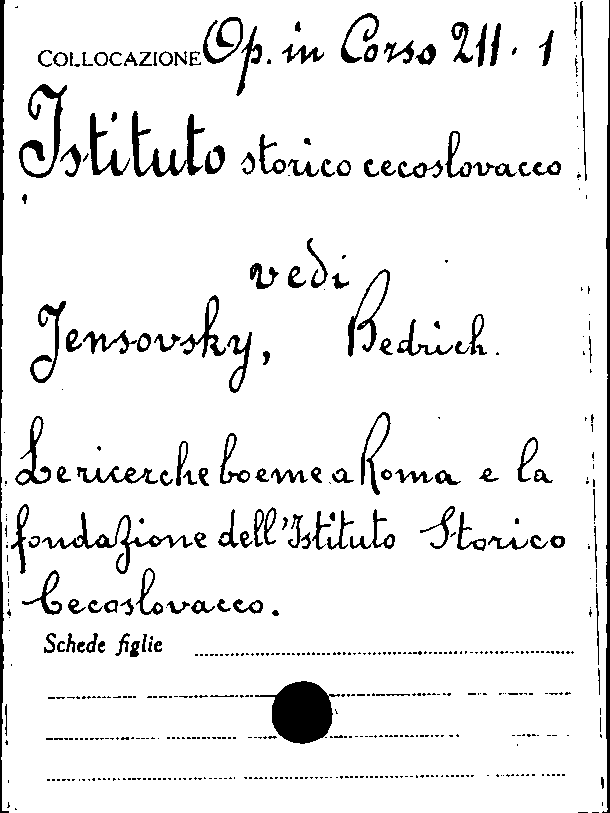 COLLOCAZIONE Op. in Corso 211 · 1
Istituto storico cecoslovacco
vedi
Jensovsky, Bedrich.
Le ricerche boeme a Roma e la
fondazione dell'Istituto Storico
Cecoslovacco.
Schede figlie